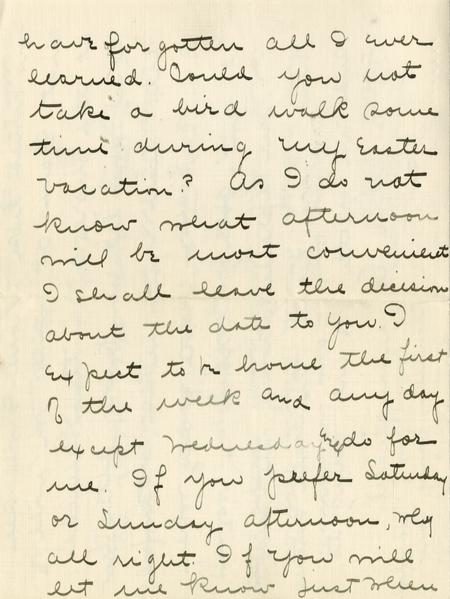 have forgotten all I ever
learned. Could you not
take a bird walk some
time during my Easter
vacation? As I do not
know what afternoon
will be most convenient
I shall leave the decision
about the date to you. I
expect to be home the first
of the week and any day
except Wednesday do for
me. If you prefer Saturday
or Sunday afternoon, why
all right. If you will
let me know just when